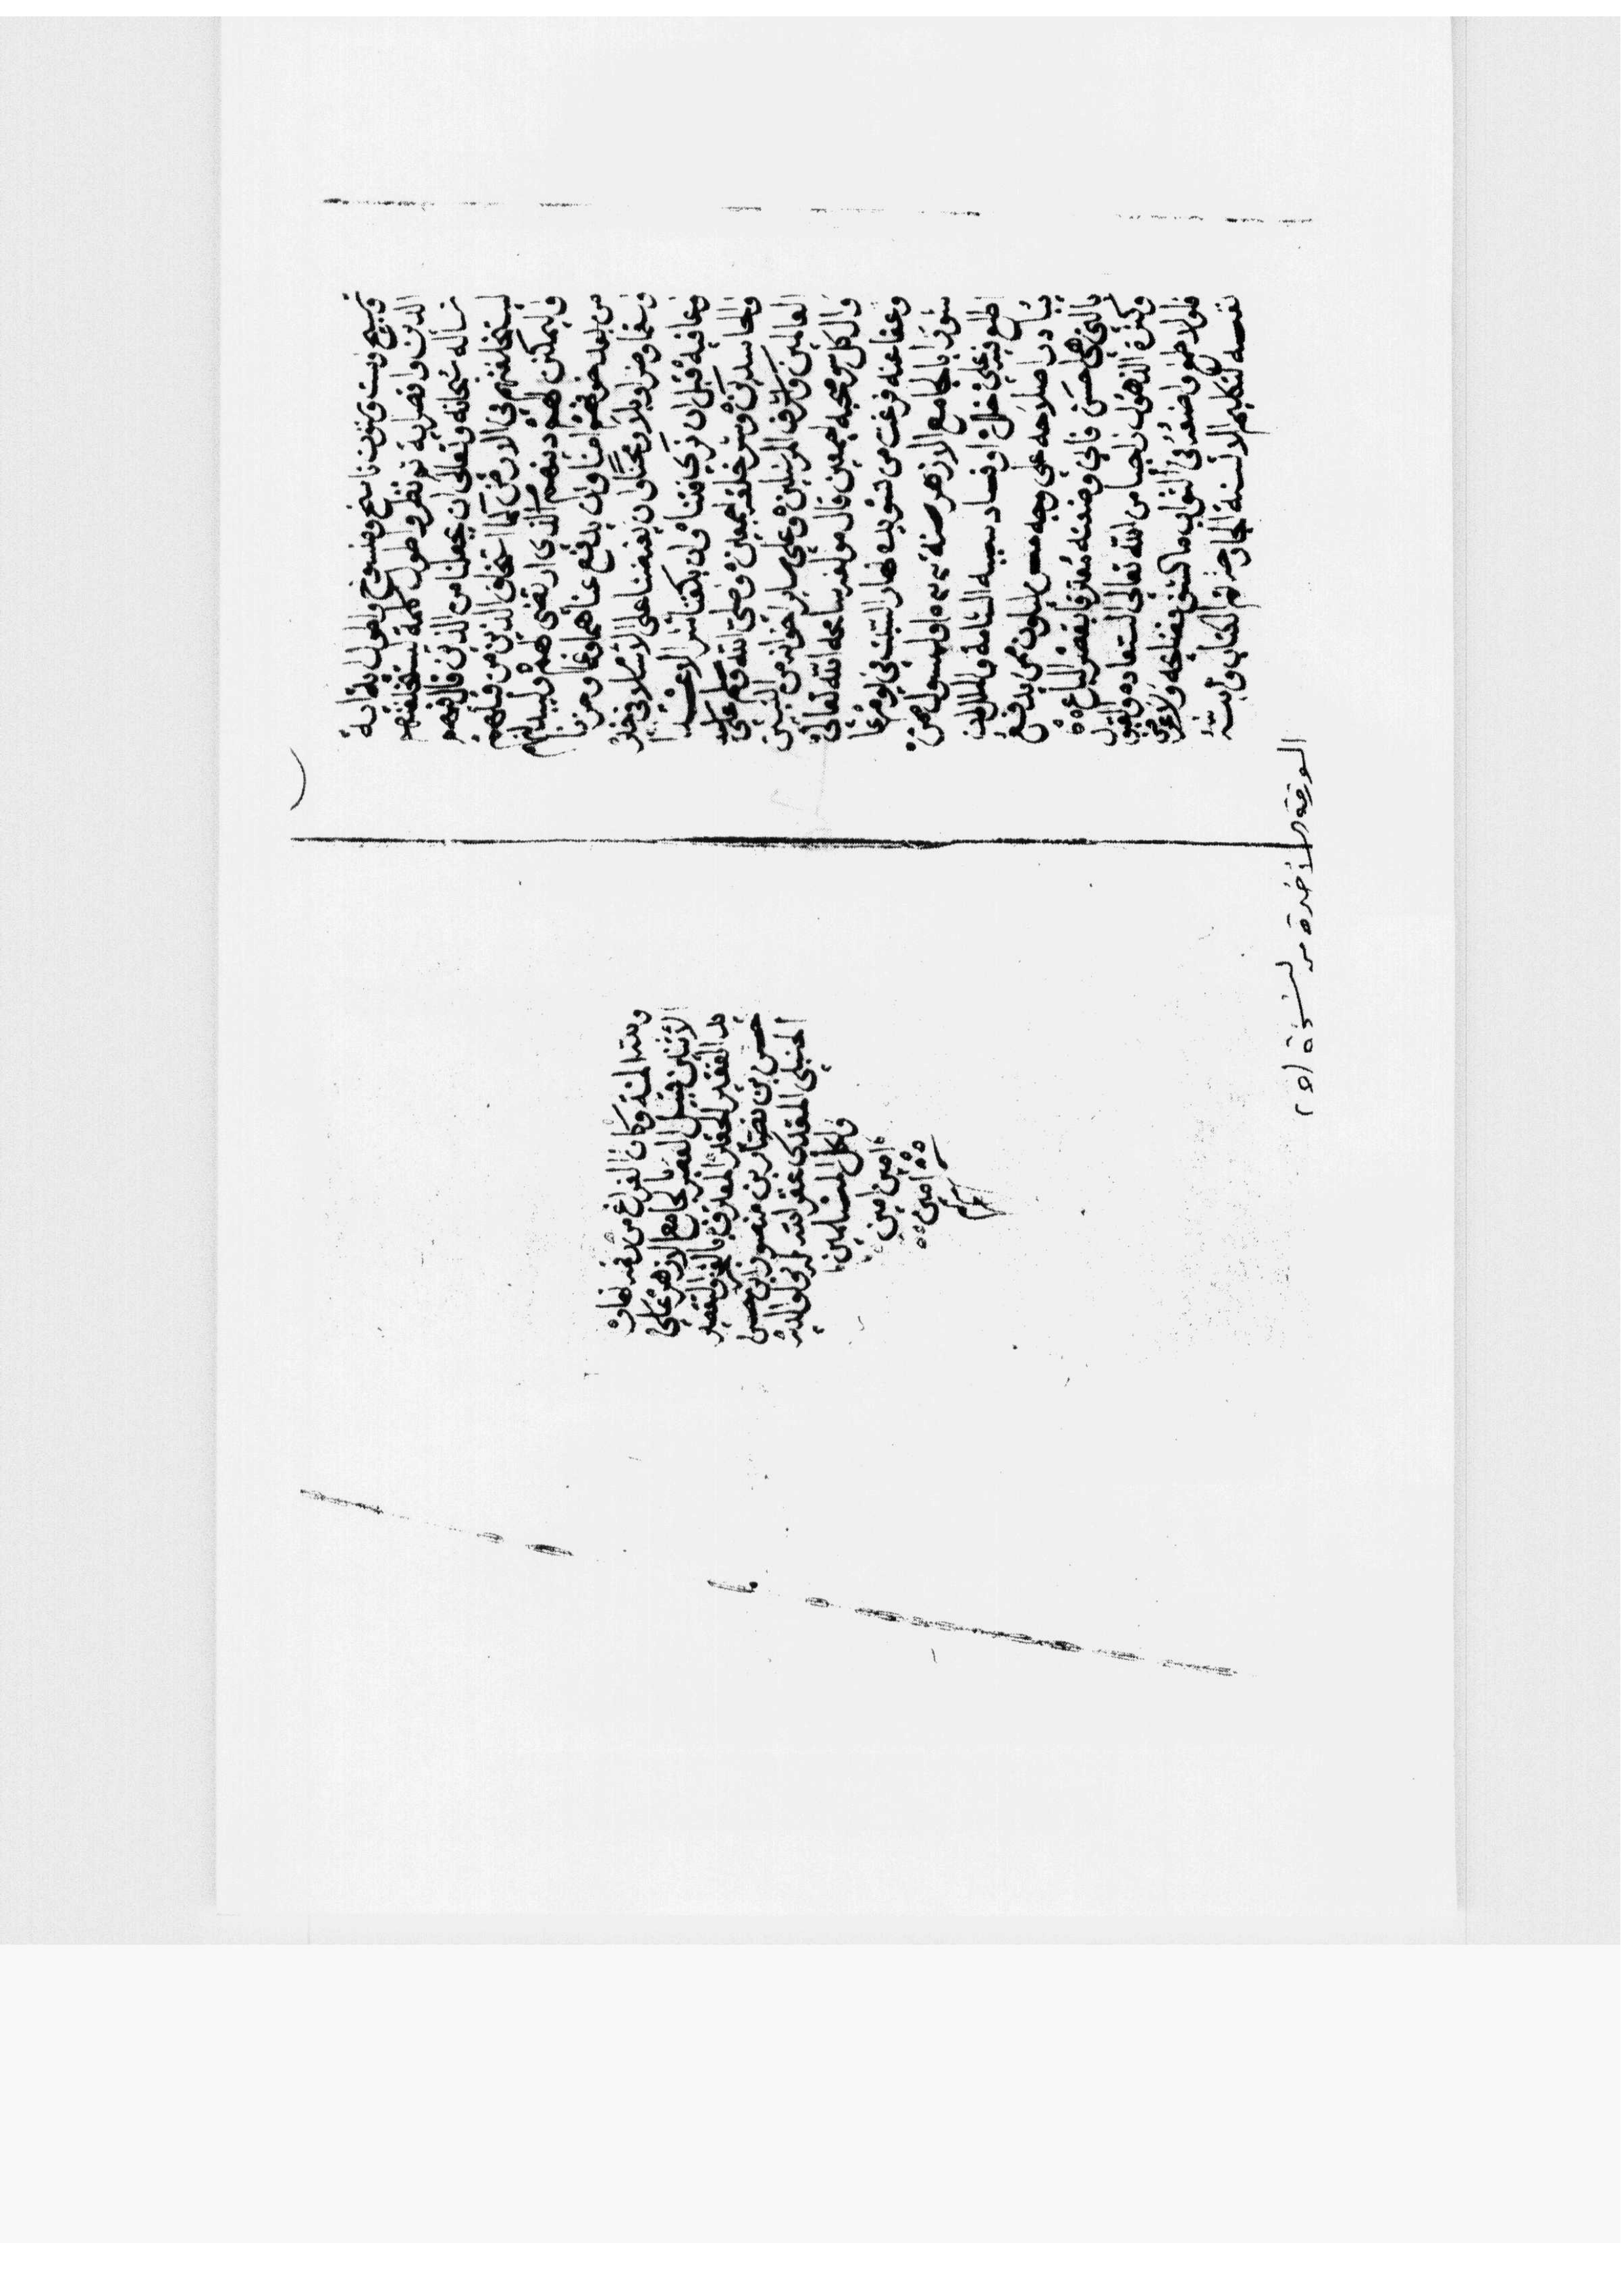 وسبع وست وستون ناسخ ومنسوخ واطول اية اية
الدين واقصر اية ثم نظر واطول كلمة ليستخلفنهم
نساله سبحانه وتعالى ان يجعلنا من الذين قال فيهم
ليستخلفنهم في الارض كما استخلف الذين من قبلهم
وليمكنن لهم دينهم الذي ارتضى لهم وليبدلنهم
من بعد خوفهم امنا وان يدفع عنا هما وغما وحزنا
وسقما وضرا وبلاء ومحنا وان يقبضنا على الاسلام في خير
وعافية قبل ان نرى فتنا وان يكفنا شر الاعدا
والحاسدين وشر خلقه اجمعين وصلى الله وسلم على سيد
العالمين واشرف المرسلين وعلى ساير اخوانه من النبيين
وال كل وصحبه اجمعين قال مولفه سامحه الله تعالى
وعفا عنه فرغت من تسويده نهار السبت في يوم عا
شورا بالجامع الازهر سنة والمسول ممن
اطلع فيه على خلل او فساد سببه السامة والملل ان
يبادر اصلاحه على وجه حسن ليكون ممن يدفع
بالتي هي احسن فاني وضعته معترفا بقصر الباع
وكثرة الذهول راجيا من الله تعالى السعادة والقبول
فلولا طمعي في الثواب ما كشفي فضلحه ولا عرض
نفسه لتكليم الالسنة الجارحة تم الكتاب
الورقة الأخيرة من نسخة (٢٥)
وكان الفراغ من نهار
الاثنين قبيل العصر بالجامع الازهر على
يد الفقير الحقير المعترف بالعجز والتقصير
حسن بن نصار بن منصور
الحنبلي المقدسي غفر الله له ولوالديه
ولكل المسلمين
امين امين
امين